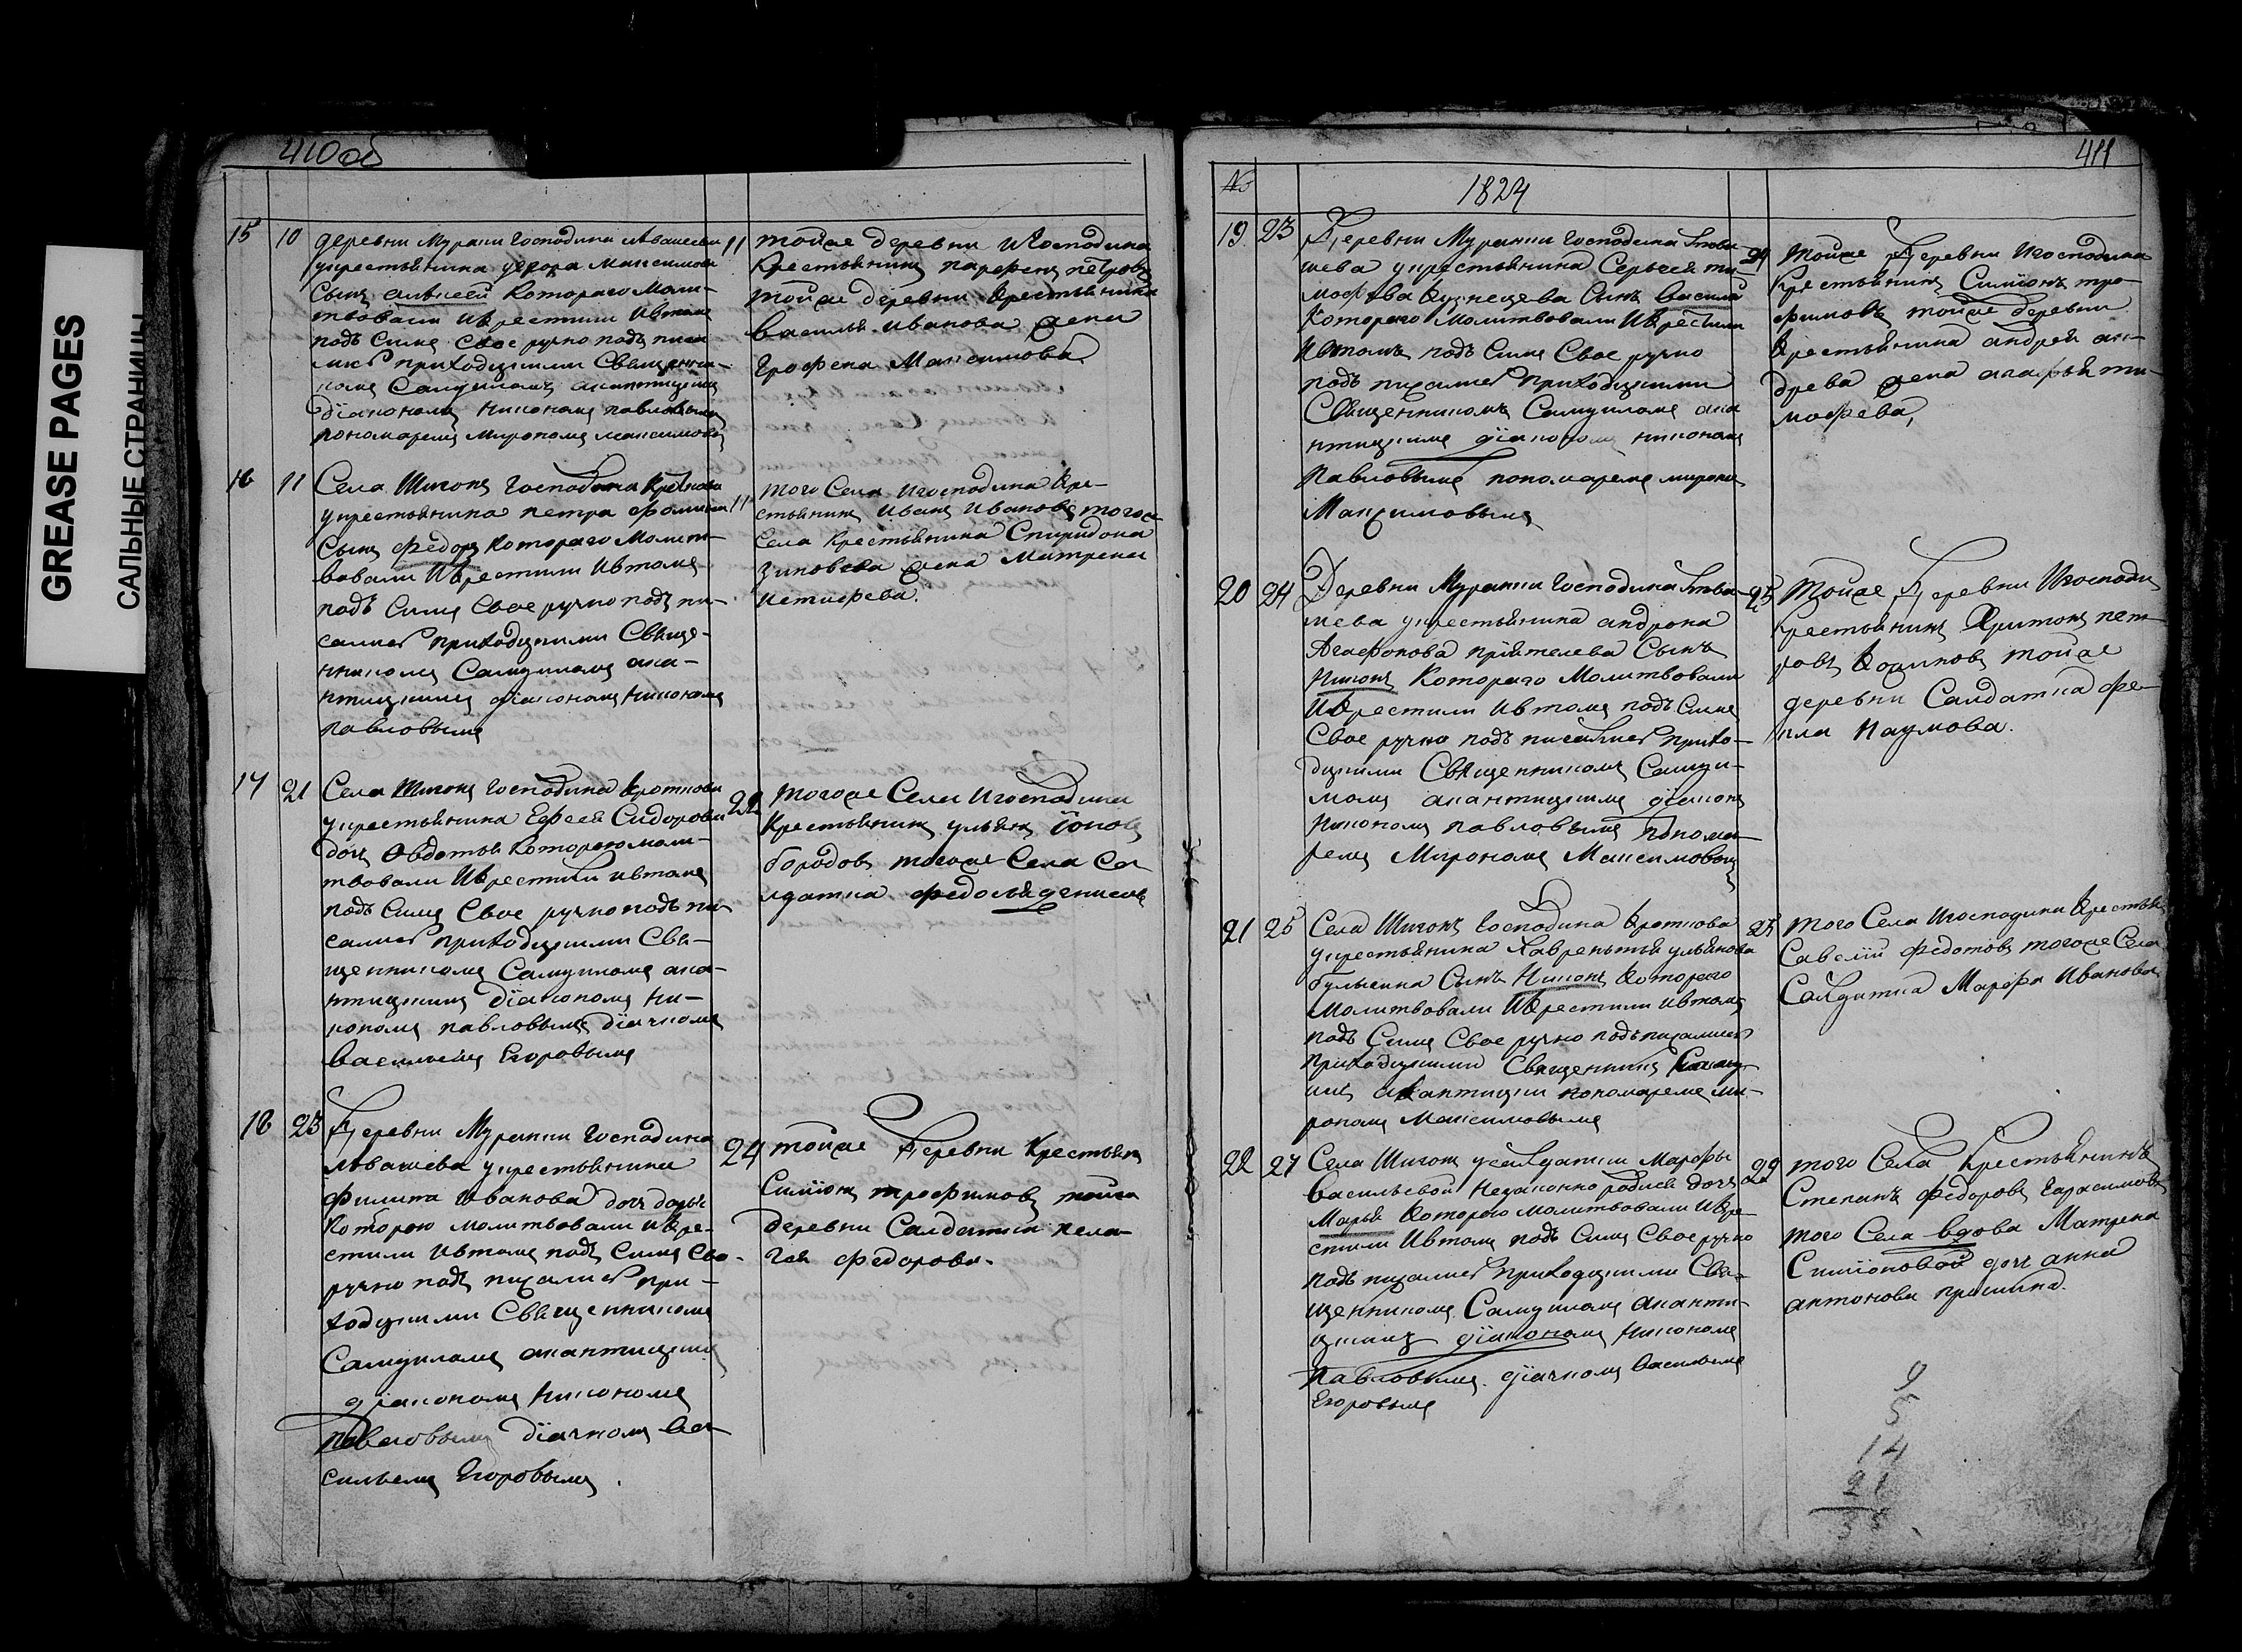 GREASE PAGES
САЛЬНЫЕ СТРАНИЦЫ
410об
15 10 деревни Муранки Господина Ивашева
укрестьянина Максимова
Сынъ алексей Котораго Моли-
твовали Икрестили Ивтомъ
подъ Симъ Свое ручно подъ писа
лись приходскими Священни-
комъ Самуиломъ акантицкимъ
діакономъ никономъ павловымъ
пономаремъ Мирономъ максимовы
11 тойже деревни Игосподина
Крестьянинъ парфенъ петровъ
тойже деревни крестьянина
Василья Иванова жена
Грофена Максимова
16 11 Села Шигонъ Господина Кроткова
укрестьянина петра фомина
Сынъ федоръ Котораго Молит-
вовали Икрестили Ивтомъ
подъ Симъ Свое ручно подъ пи-
сались приходскими Свяще-
нникомъ Самуиломъ ака-
нтицкимъ діакономъ никономъ
павловымъ
11 того Села Игосподина Кре-
стьянинъ Иванъ Ивановъ тогож
Села Крестьянина Спиридона
Зиновьева жена Матрена
17 21 Села Шигонъ Господина Кроткова
укрестьянина Сидорова
дочь Овдотья Которою моли-
твовали Икрестили ивтомъ
подъ Симъ Свое ручно подъ пи-
сались приходскими Свя-
щенникомъ Самуиломъ ака-
нтицкимъ діакономъ ни-
кономъ павловымъ діячкомъ
Васильемъ Егоровымъ
22 тогоже Села Игосподина
Крестьянинъ ульянъ
бородовъ тогоже Села Со
лдатка федосья денисовъ
18 23 Деревни Муранки Господина
Ивашева укрестьянина
Филипа Иванова дочь дарья
Которою молитвовали икре-
стили ивтомъ подъ Симъ Сво-
ручно подъ писались при-
ходскими Священникомъ
Самуиломъ акантицкимъ
діакономъ никономъ
павловымъ діячкомъ Ва-
сильемъ Егоровымъ.
24 тойже Деревни Крестьян
Симіонъ трофимовъ тойже
деревни Салдатка пела-
гея федорова.
411
№ 1824
19 23 Деревни Муранки Господина Ива
шева укрестьянина Сергея ти-
мофева Кузнецева Сынъ Василей
Котораго Молитвовали Икрестили
Ивтомъ подъ Симъ Свое ручно
подъ писались приходскими
Священникомъ Самуиломъ ака
нтицкимъ діакономъ никономъ
павловымъ пономаремъ мироно
Максимовымъ
24 тойже Деревни Игосподина
Крестьянинъ Симіонъ тро-
фимовъ тойже деревни
Крестьянина андрея ан-
древа жена агафья ти-
мофева,
20 24 Деревни Муранки Господина Ива-
шева укрестьянина андрона
Агафонова пріятелева Сынъ
Никонъ Котораго Молитвовали
Икрестили Ивтомъ подъ Симъ
Свое ручно подъ писались прихо-
дскими Священникомъ Самуи-
ломъ акантицкимъ діакон
никономъ павловымъ понома-
ремъ Мирономъ Максимовым
25 Тойже Деревни Игосподи
крестьянинъ Харитонъ пет-
ровъ тойже
деревни Салдатка фе-
кла Наумова.
21 25 Села Шигонъ Господина Кроткова
укрестьянина Лаврентья ульянова
Сынъ Никонъ Котораго
молитвовали Икрестили ивтомъ
подъ Симъ Свое ручно подъ писались
приходскими Священникъ Самуи
илъ акантицки пономаремъ ми-
рономъ Максимовымъ
25 того Села Игосподина Крестья
Савелій Федотовъ тогоже Села
Солдатка Марфа Иванова
22 27 Села Шигонъ усалдатки Марфы
Васильевой Незаконно родися дочь
Марья Которою молитвовали Икре-
стили Ивтомъ подъ Симъ Свое ручно
подъ писались приходскими Свя-
щенникомъ Самуиломъ аканти-
цкимъ діакономъ никономъ
павловымъ. діячкомъ Васильемъ
Егоровымъ
29 того Села Крестьянинъ
Степанъ федоровъ Гарасимовъ
того Села вдова Матрена
Симіоновой дочь анна
антонова
9
5
14
21